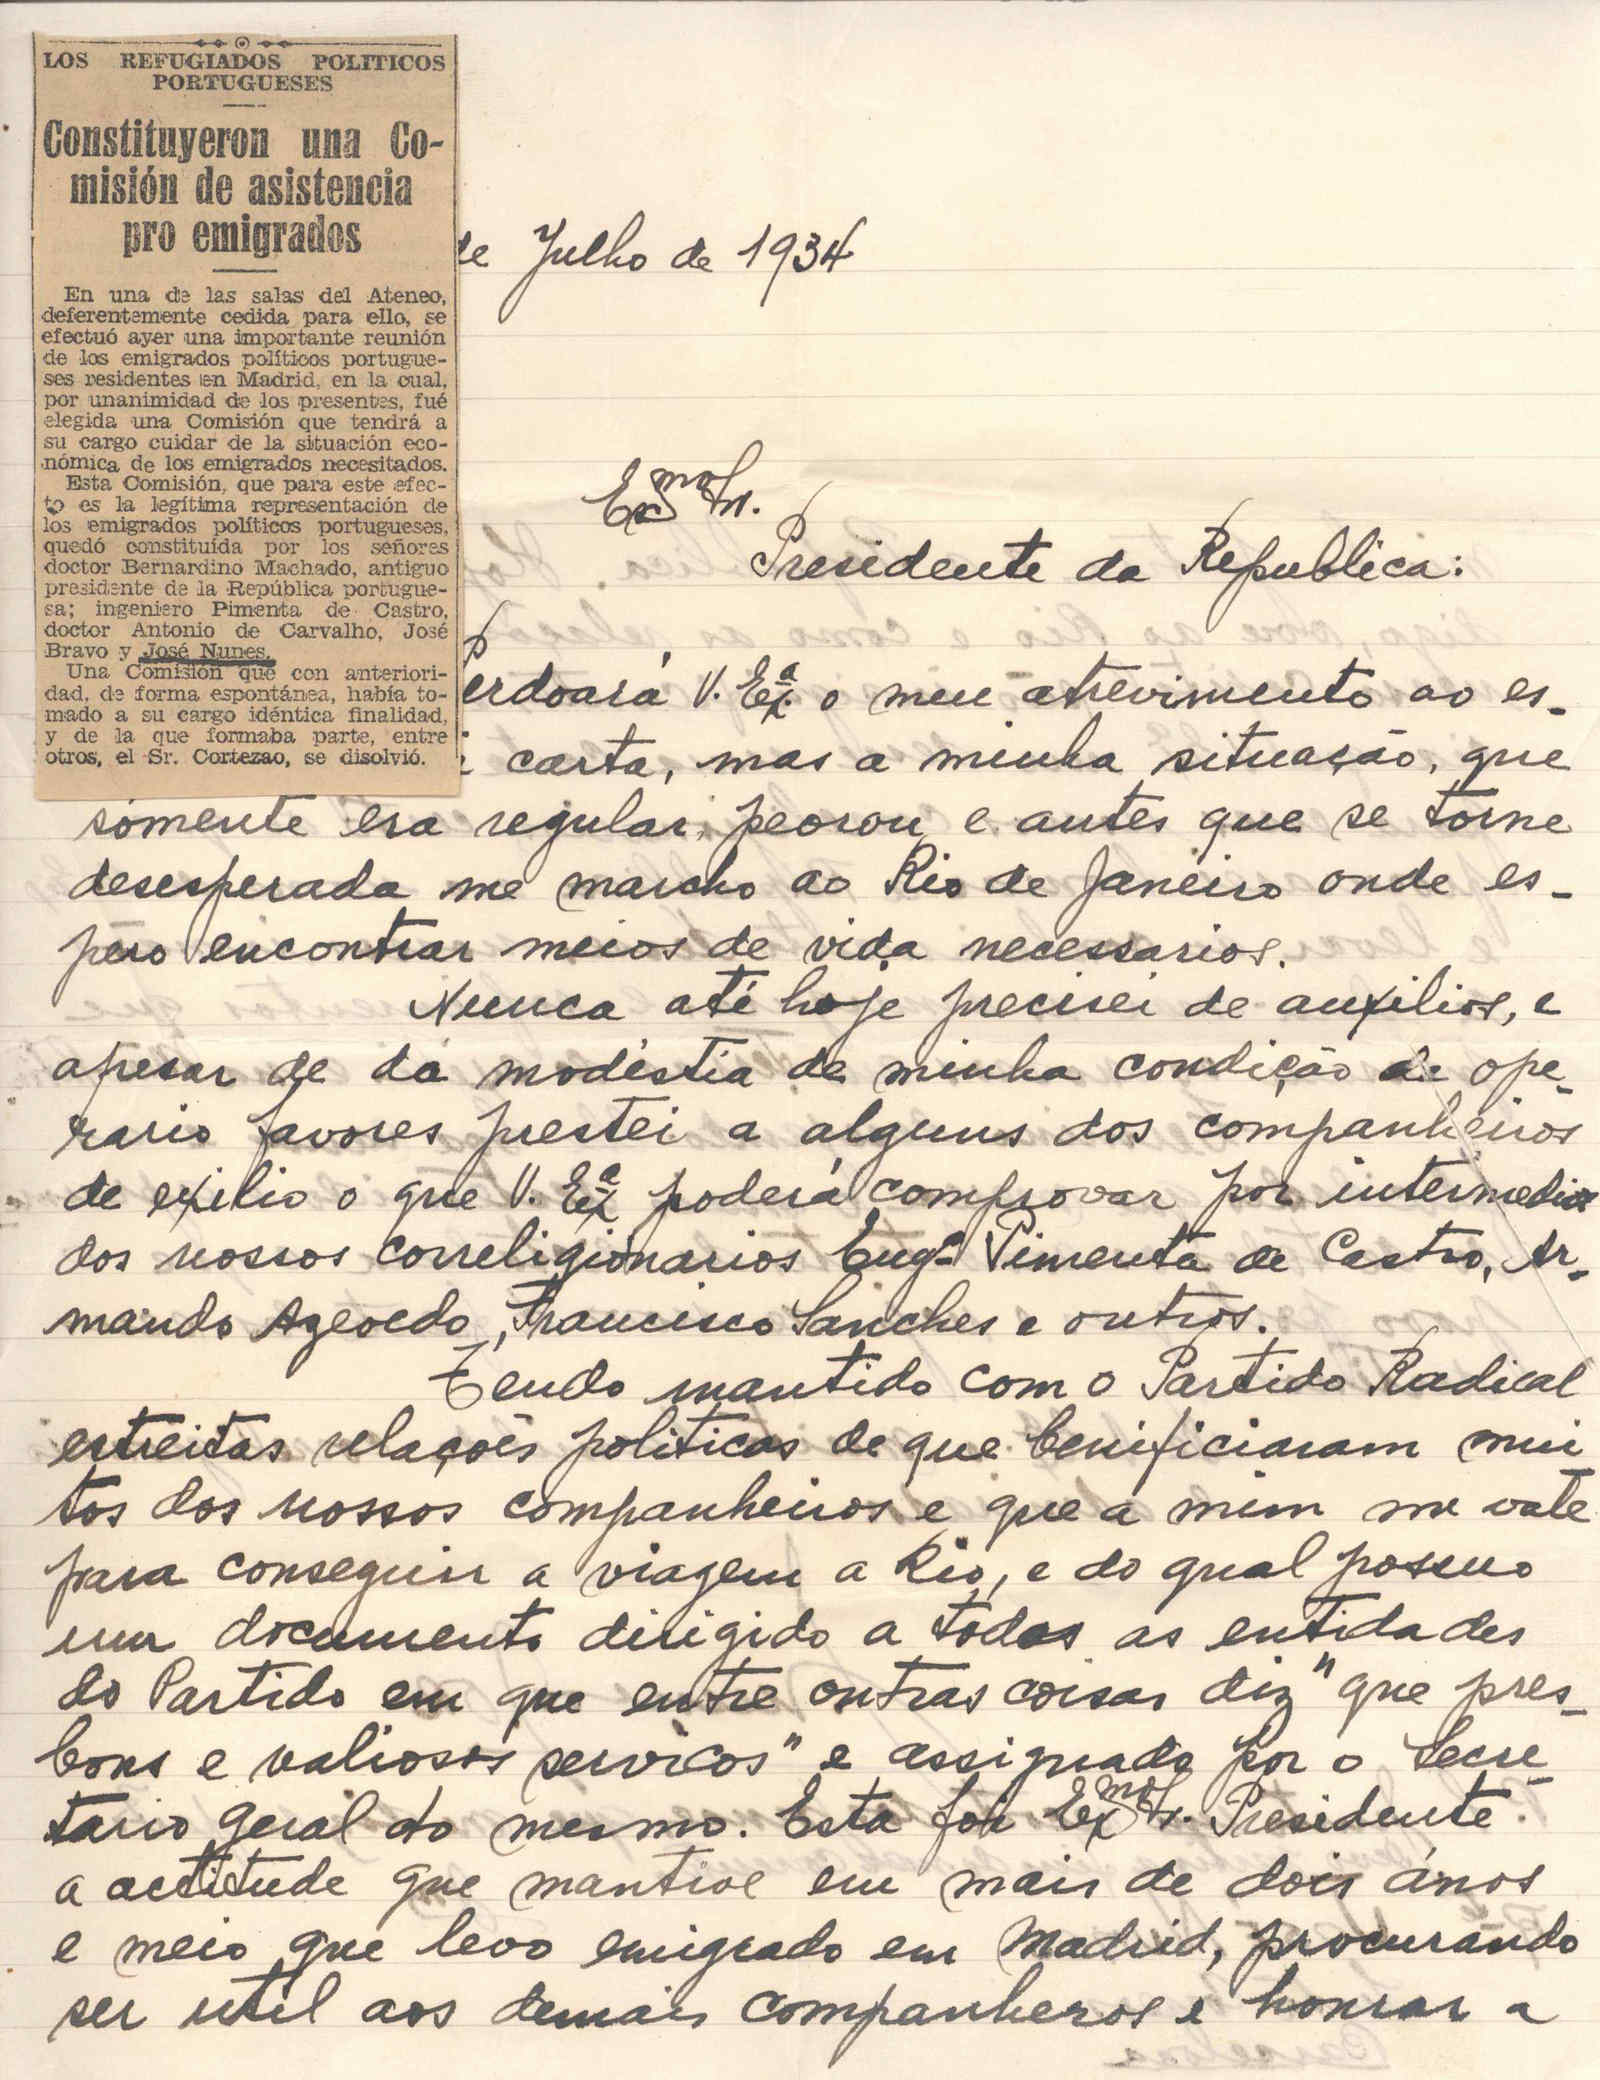 LOS REFUGIADOS POLITICOS
PORTUGUESES
Constituyeron una Co-
misión de asistencia
pro emigrados
En una de las salas del Ateneo,
deferentemente cedida para ello, se
efectuó ayer una importante reunión
de los emigrados políticos portugue-
ses residentes en Madrid, en la cual,
por unanimidad de los presentes, fué
elegida una Comisión que tendrá a
su cargo cuidar de la situación eco-
nómica de los emigrados necesitados.
Esta Comisión, que para este efec-
to es la legítima representación de
los emigrados políticos portugueses,
quedó constituída por los señores
doctor Bernardino Machado, antiguo
presidente de la República portugue-
sa; ingeniero Pimenta de Castro,
doctor Antonio de Carvalho, José
Bravo y José Nunes.
Una Comisión que con anteriori-
dad, de forma espontánea, había to-
mado a su cargo idéntica finalidad,
y de la que formaba parte, entre
otros, el Sr. Cortezao, se disolvió.
de Julho de 1934
Exmo Sr.
Presidente da Republica:
Perdoará V. Exª o meu atrevimento ao es-
carta, mas a minha situação, que
sómente era regular, peorou e antes que se torne
desesperada me marcho ao Rio de Janeiro onde es-
pero encontrar meios de vida necessarios.
Nunca até hoje precisei de auxilios, e
apesar de da modéstia de minha condição de ope-
rario favores prestei a alguns dos companheiros
de exilio o que V. Exª poderá comprovar por intermedio
dos nossos correligionarios Engº Pimenta de Castro, Ar-
mando Azevedo, Francisco Sanches e outros.
Tendo mantido com o Partido Radical
estreitas relações politicas de que benificiaram mui
tos dos nossos companheiros e que a mim me vale
para conseguir a viagem a Rio, e do qual possuo
um documento dirigido a todas as entidades
do Partido em que entre outras coisas diz "que pres-
bons e valiosos servicos" e assignado por o Secre-
tario geral do mesmo. Esta foi Exmo Sr. Presidente
a actitude que mantive em mais de dois ános
e meio que levo emigrado em Madrid, procurando
ser util aos demais companheros e honrar a